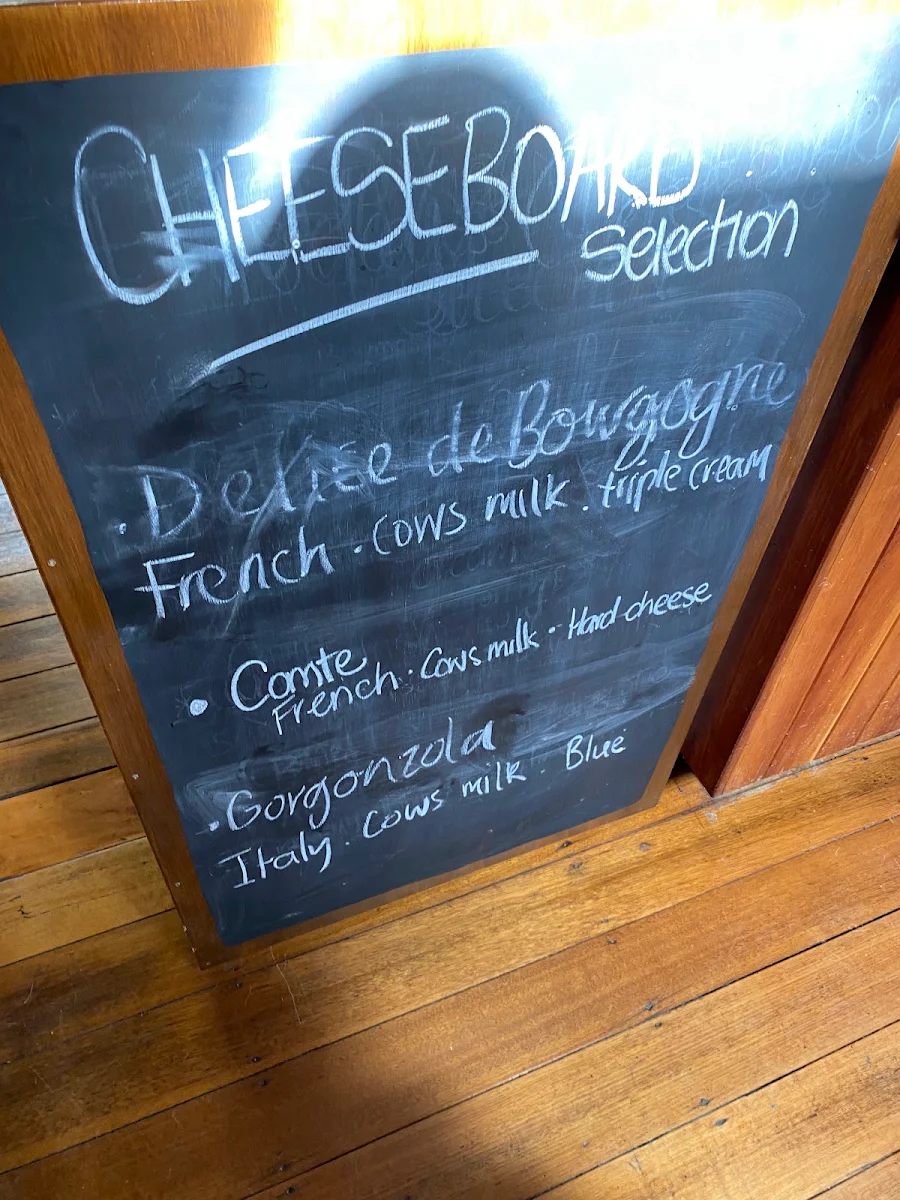 CHEESEBOARD
Selection
. Delice de Bourgogne
French . Cows milk . triple cream
• Comte
French . Cows milk . Hard cheese
. Gorgonzola
Italy . Cows milk . Blue